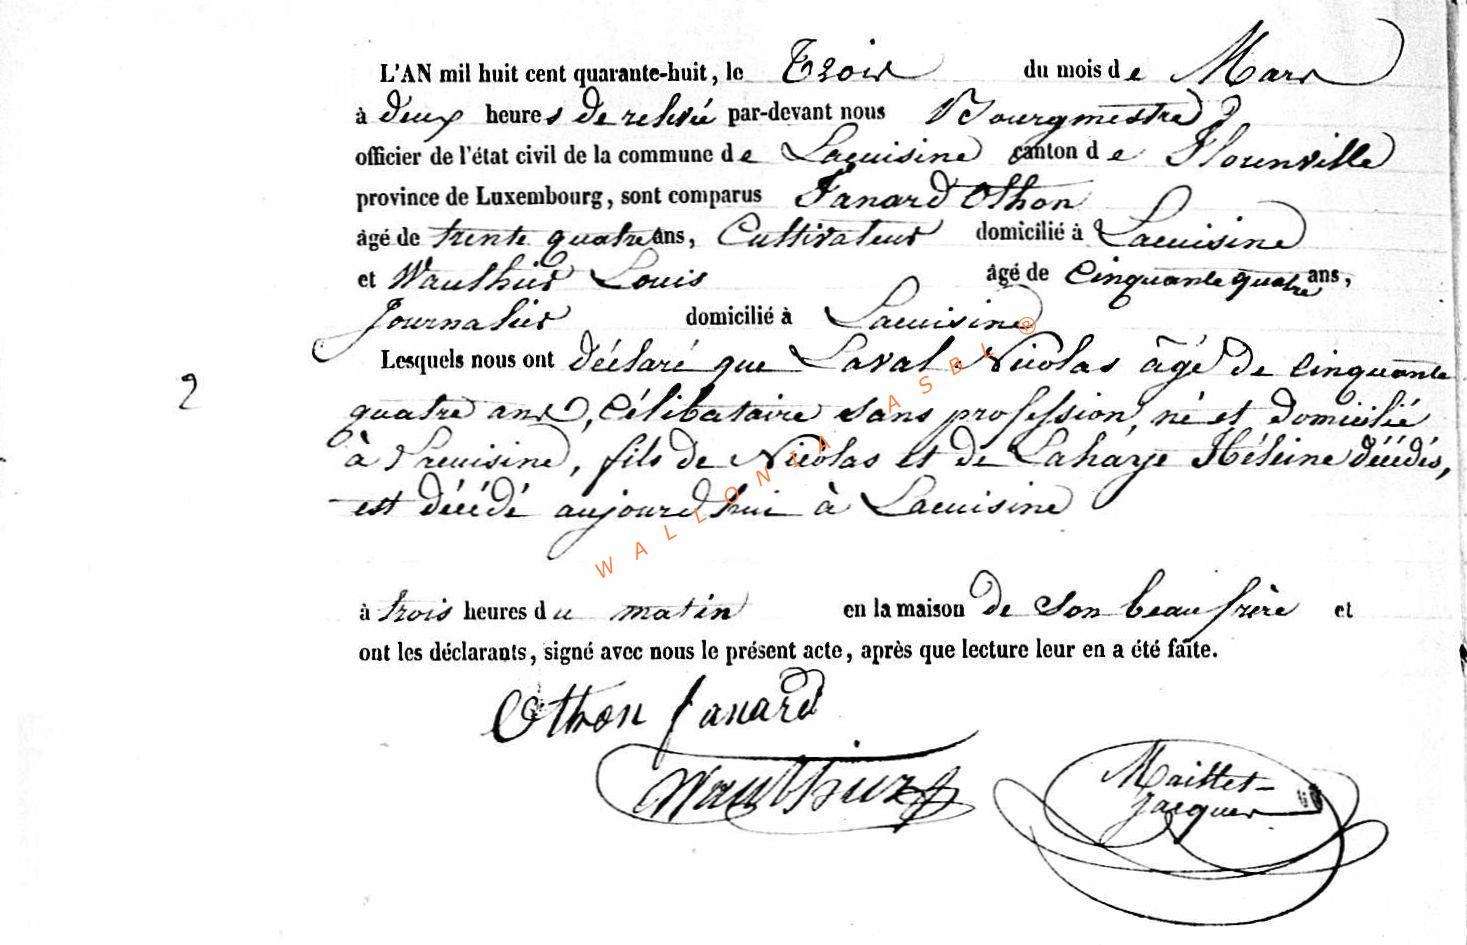 L'AN mil huit cent quarante-huit, le Trois du mois de Mars
à deux heures de relevé par-devant nous Bourgmestre
officier de l'état civil de la commune de Lacuisine canton de Florenville
province de Luxembourg, sont comparus Fanard Othon
âgé de trente quatre ans, Cultivateur domicilié à Lacuisine
et Wauthier Louis âgé de Cinquante quatre ans,
Journalier domicilié à Lacuisine
Lesquels nous ont déclaré que Laval Nicolas âgé de Cinquante
2
quatre ans, Célibataire sans profession, né et domicilié
à Lacuisine, fils de Nicolas et de Lahaye Hélène décédés,
est décédé aujourd'hui à Lacuisine
WALLONIA ASBL ®
à trois heures du matin en la maison de son beau frère et
ont les déclarants, signé avec nous le présent acte, après que lecture leur en a été faite.
Othon fanard
Wauthier
Maillet-
jacques